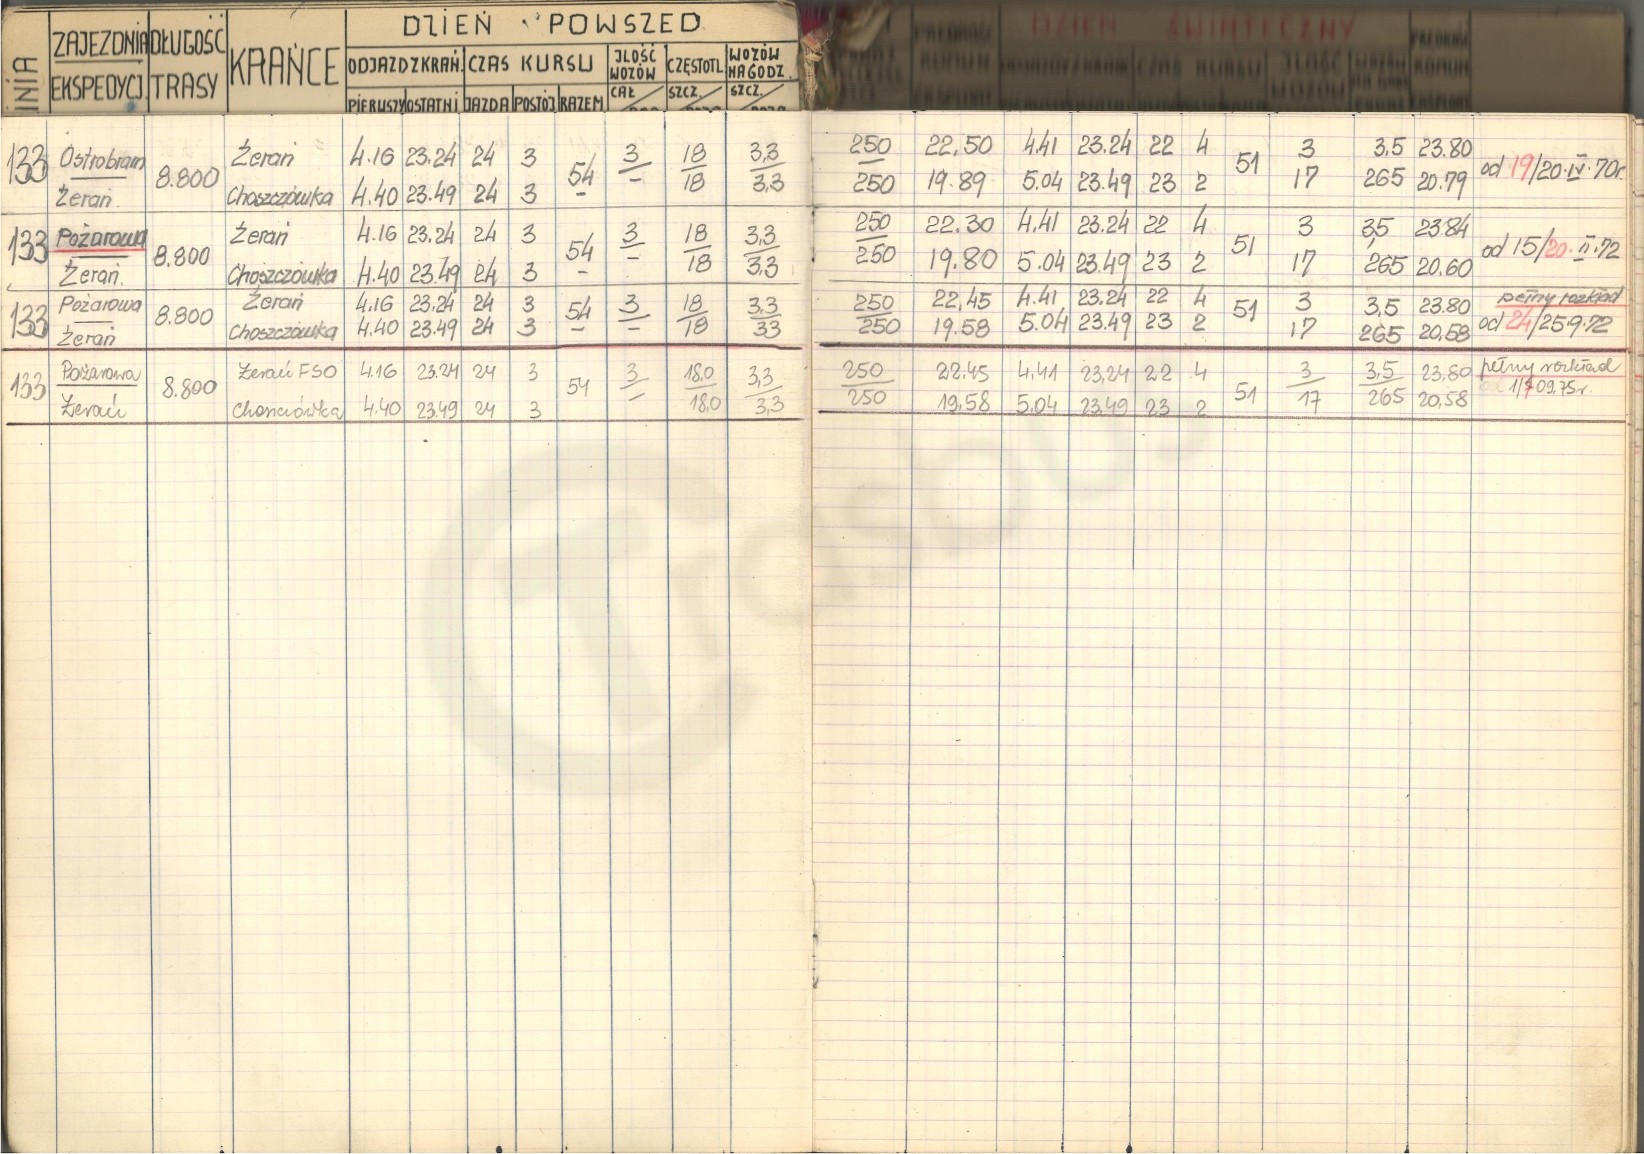 DZIEŃ POWSZED
LINIA ZAJEZDNIA DŁUGOŚĆ KRAŃCE ODJAZD Z KRAŃ. CZAS KURSU JLOŚĆ CZĘSTOTL WOZÓW
EKSPEDYCJ. TRASY WOZÓW NA GODZ.
PIERUSZY OSTATNI JAZDA POSTÓJ RAZEM CAŁ SZCZ. SZCZ.
DZIEŃ ŚWIĄTECZNY
133 Ostrobram 8.800 Żerań 4.16 23.24 24 3 54 3 18 3,3 250 22,50 4.41 23.24 22 4 51 3 3,5 23.80 od 19/20.IV.70r.
Żerań Choszczówka 4.40 23.49 24 3 – – 18 3,3 250 19.89 5.04 23.49 23 2 17 265 20.79
133 Pożarowa 8.800 Żerań 4.16 23.24 24 3 54 3 18 3,3 250 22.30 4.41 23.24 22 4 51 3 3,5 23.84 od 15/20.II.72
Żerań. Choszczówka 4.40 23.49 24 3 – – 18 3,3 250 19.80 5.04 23.49 23 2 17 265 20.60
133 Pożarowa 8.800 Żerań 4.16 23.24 24 3 54 3 18 3,3 250 22,45 4.41 23.24 22 4 51 3 3,5 23.80 pełny rozkład
Żerań Choszczówka 4.40 23.49 24 3 – – 18 33 250 19.58 5.04 23.49 23 2 17 265 20,58 od 24/25.9.72
133 Pożarowa 8.800 Żerań FSO 4.16 23.24 24 3 54 3 18,0 3,3 250 22.45 4,41 23,24 22 4 51 3 3,5 23,80 pełny rozkład
Żerań 4.40 23.49 24 3 – 18,0 3,3 250 19,58 5.04 23.49 23 2 17 265 20,58 09.75r.
Trasbus